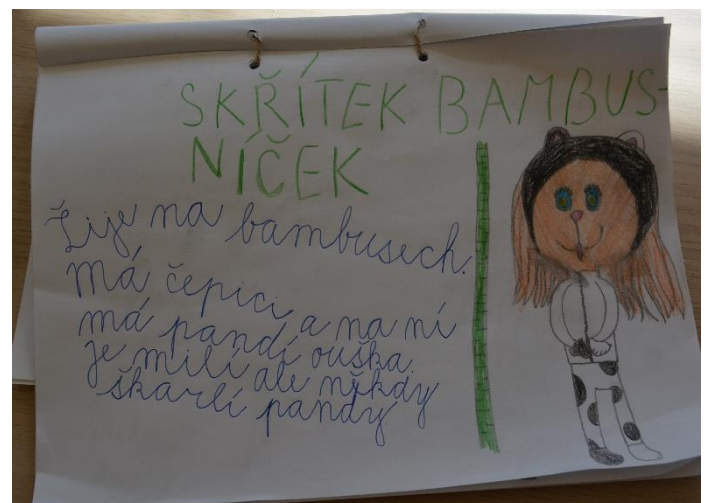 SKŘÍTEK BAMBUS-
NÍČEK
Žije na bambusech.
Má čepici a na ní
má pandí ouška.
je milí ale někdy
škarlí pandy.